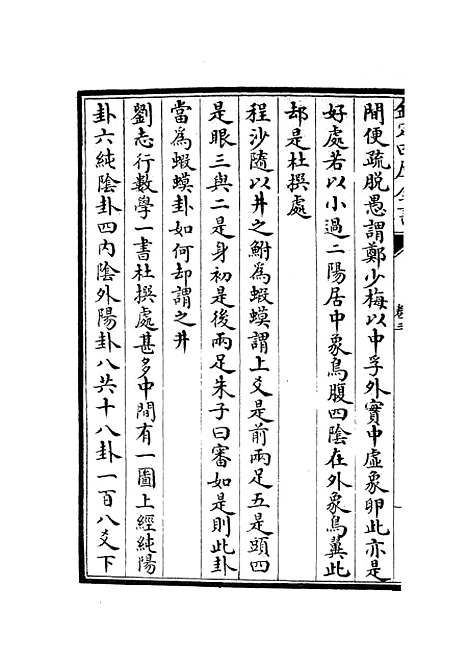 間便疏脱愚謂鄭少梅以中孚外實中虛象卵此亦是
好處若以小過二陽居中象鳥腹四陰在外象鳥翼此
却是杜撰處
程沙隨以井之鮒為蝦蟆謂上爻是前兩足五是頭四
是眼三與二是身初是後兩足朱子曰審如是則此卦
當為蝦蟆卦如何却謂之井
劉志行數學一書杜撰處甚多中間有一圖上經純陽
卦六純陰卦四內陰外陽卦八共十八卦一百八爻下